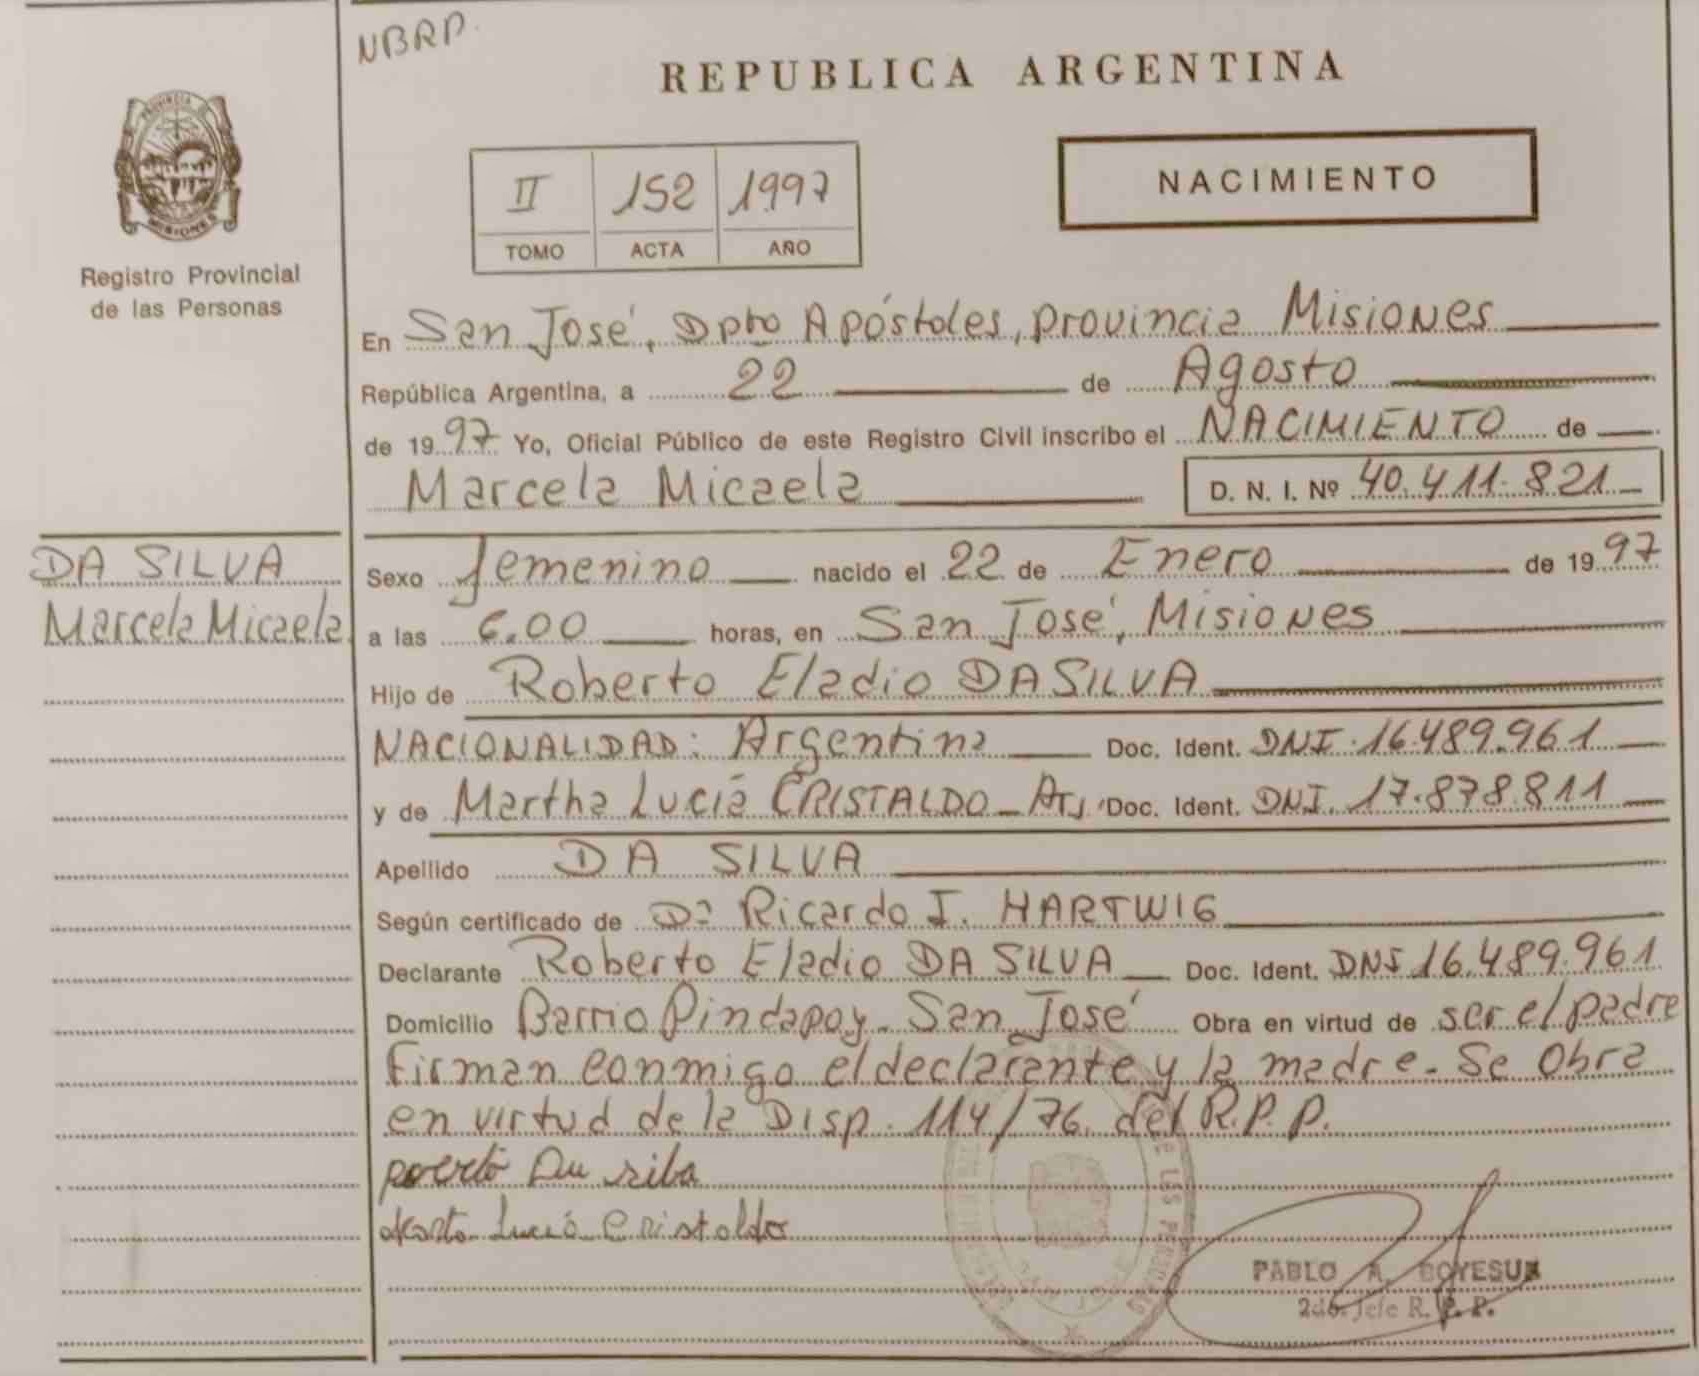 NBRP.
REPUBLICA ARGENTINA
PROVINCIA DE
MISIONES
Registro Provincial
de las Personas
II 152 1997
TOMO ACTA AÑO
NACIMIENTO
En San José, Dpto Apóstoles, provincia Misiones
República Argentina, a 22 de Agosto
de 1997 Yo, Oficial Público de este Registro Civil inscribo el NACIMIENTO de
Marcela Micaela D. N. I. Nº 40.411.821
DA SILVA
Marcela Micaela
Sexo femenino nacido el 22 de Enero de 1997
a las 6.00 horas, en San José, Misiones
Hijo de Roberto Eladio DA SILVA
NACIONALIDAD: Argentina Doc. Ident. DNI 16.489.961
y de Martha Lucía CRISTALDO - Doc. Ident. DNI. 17.878.811
Apellido DA SILVA
Según certificado de Dr Ricardo I. HARTWIG
Declarante Roberto Eladio DA SILVA Doc. Ident. DNI 16.489.961
Domicilio Barrio Pindapoy - San José Obra en virtud de ser el padre
Firman conmigo el declarante y la madre - Se Obra
en virtud de la Disp. 114/76 del R.P.P.
Lucia Cristaldo
PABLO A.
2do. Jefe R. P. P.